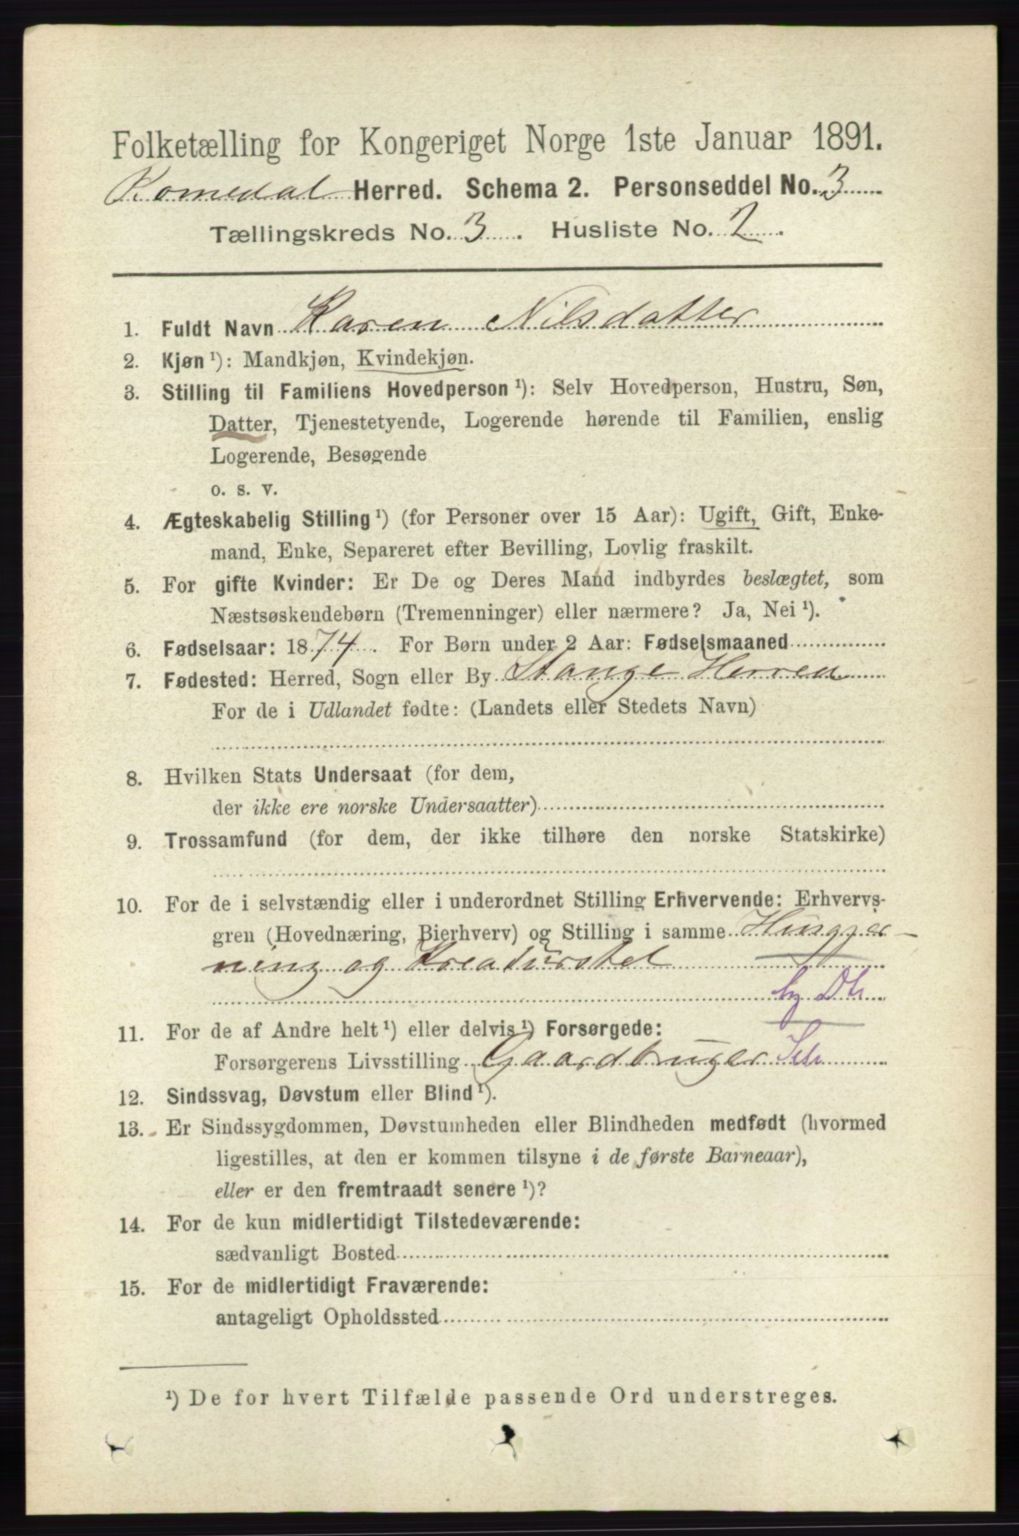 Folketælling for Kongeriget Norge 1ste Januar 1891.
Romedal Herred. Schema 2. Personseddel No. 3
Tællingskreds No. 3. Husliste No. 2.
1. Fuldt Navn Karen Nilsdatter
2. Kjøn ¹): Mandkjøn, Kvindekjøn.
3. Stilling til Familiens Hovedperson ¹): Selv Hovedperson, Hustru, Søn,
Datter, Tjenestetyende, Logerende hørende til Familien, enslig
Logerende, Besøgende
o. s. v.
4. Ægteskabelig Stilling ¹) (for Personer over 15 Aar): Ugift, Gift, Enke-
mand, Enke, Separeret efter Bevilling, Lovlig fraskilt.
5. For gifte Kvinder: Er De og Deres Mand indbyrdes beslægtet, som
Næstsøskendebørn (Tremenninger) eller nærmere? Ja, Nei ¹).
6. Fødselsaar: 1874. For Børn under 2 Aar: Fødselsmaaned
7. Fødested: Herred, Sogn eller By Stange Herred
For de i Udlandet fødte: (Landets eller Stedets Navn)
8. Hvilken Stats Undersaat (for dem,
der ikke ere norske Undersaatter)
9. Trossamfund (for dem, der ikke tilhøre den norske Statskirke)
10. For de i selvstændig eller i underordnet Stilling Erhvervende: Erhvervs-
gren (Hovednæring, Bierhverv) og Stilling i samme Husgjer-
ning og Kreaturstel
11. For de af Andre helt ¹) eller delvis ¹) Forsørgede:
Forsørgerens Livsstilling Gaardbruger
12. Sindssvag, Døvstum eller Blind ¹).
13. Er Sindssygdommen, Døvstumheden eller Blindheden medfødt (hvormed
ligestilles, at den er kommen tilsyne i de første Barneaar),
eller er den fremtraadt senere ¹)?
14. For de kun midlertidigt Tilstedeværende:
sædvanligt Bosted
15. For de midlertidigt Fraværende:
antageligt Opholdssted
¹) De for hvert Tilfælde passende Ord understreges.